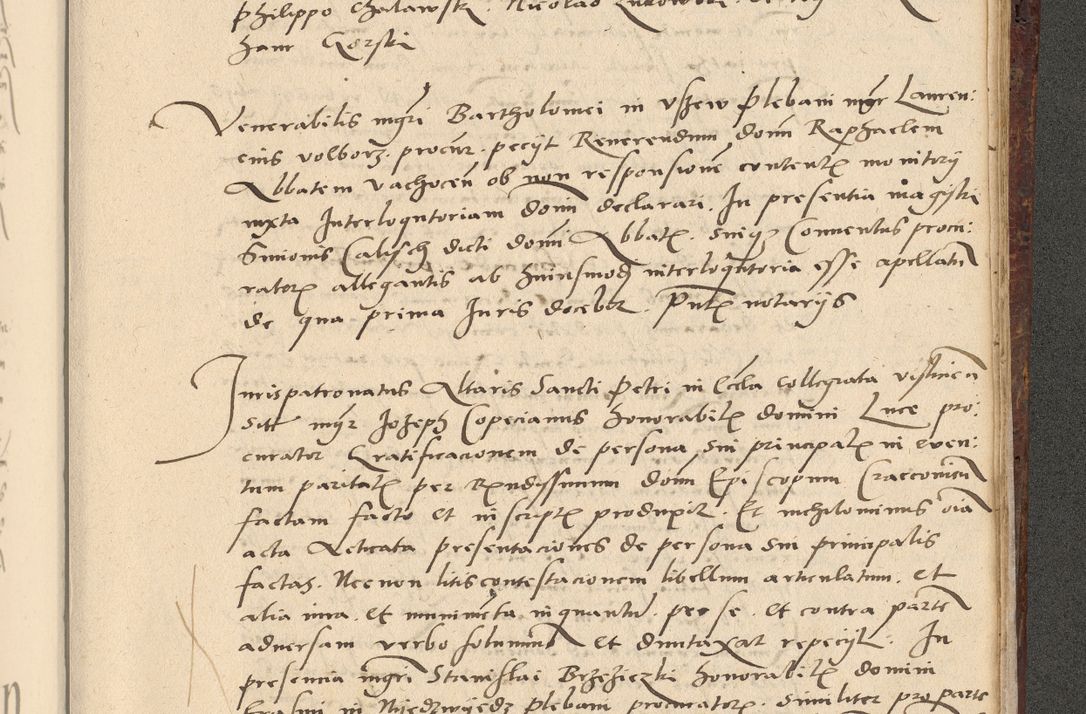 Philippo Chalawski. Nicolao
hann Gorski
Venerabilis mgri Bartholomei in Uszew plebani mgr Lauren:
cius Volborz. procur. peciit Reverendum domi Raphaelem
Abbatem Vachocen ob non responsione content monitorii
iuxta Interloqutoriam domi declarari. In presentia magistri
Simonis Calisch dicti domi Abbat. suiq Conventus procu:
rator allegantis ab huiusmod interloqutoria esse apellatu
de qua prima Juris docebit. Pnt notariis
Jurispatronatus Altaris Sancti Petri in Eccla Collegiata Vislicien
sitt mgr Jozeph Copecianus honorabil domini Luce pro:
curator Gratificacionem de persona sui principal in even:
tum paritat per Rendissimum domi Episcopum Craccovien
factam facto et in script produxit. Et nichilominus oia
acta Acticata presentaciones de persona sui principalis
factas. Necnon litiscontestacionem libellum articulatum. et
alia iura. et munimeta inquantu. pro se. et contra parte
adversam verbo solumm et dumtaxat repeciit. In
presencia mgri Stanislai Brzeziczki honorabil domini
Erasmi in Niedzwiedz plebani procurator. similiter pro parte